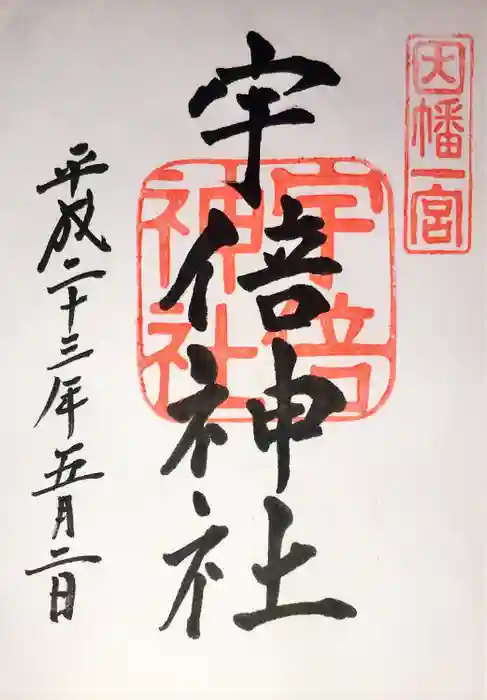 因幡一宮
宇倍神社
宇倍神社
平成二十三年五月二日